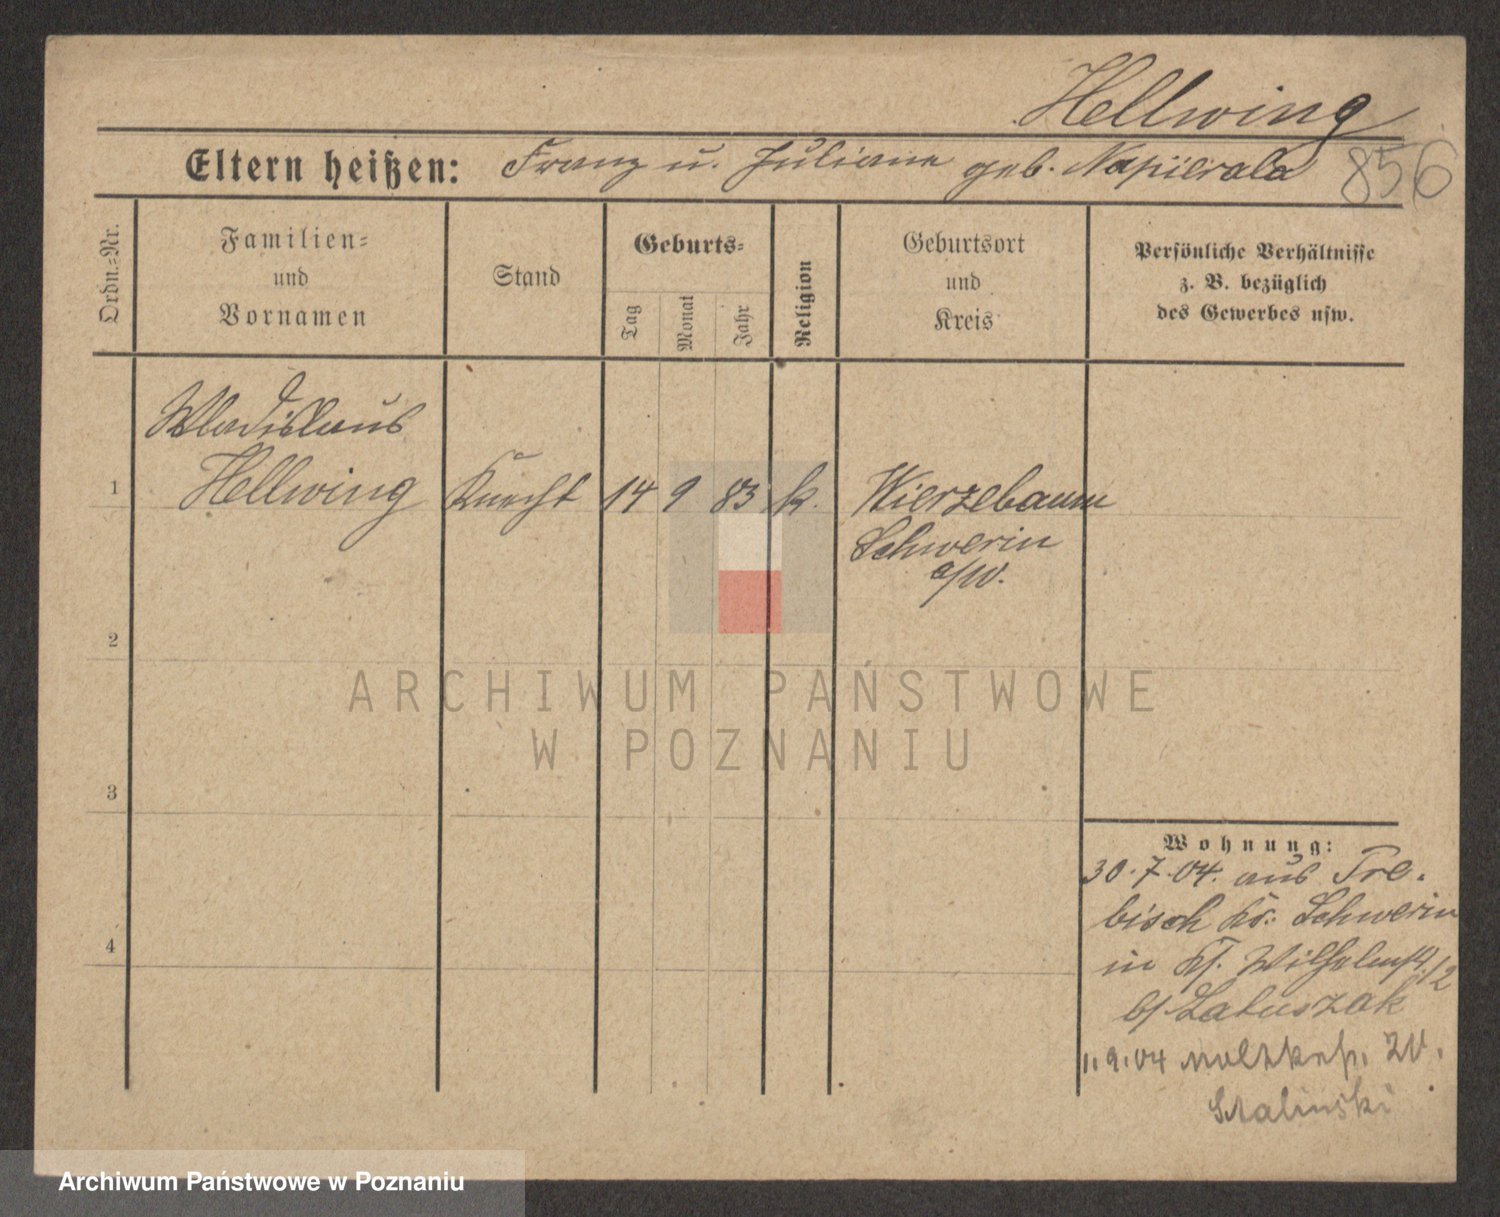 Hellwing
Eltern heißen: Franz u. Juliane geb. Napierala 856
Ordn.-Nr.
Familien-
und
Vornamen
Stand
Geburts-
Tag
Monat
Jahr
Religion
Geburtsort
und
Kreis
Persönliche Verhältnisse
z. B. bezüglich
des Gewerbes usw.
Wladislaus
1 Hellwing Knecht 14 9 83 k. Wierzebaum
Schwerin
a/W.
2
ARCHIWUM PAŃSTWOWE
W POZNANIU
3
Wohnung:
30.7.04. aus Tre-
bisch Kr. Schwerin
4
in
b/ Latuszak
1.9.04
Archiwum Państwowe w Poznaniu